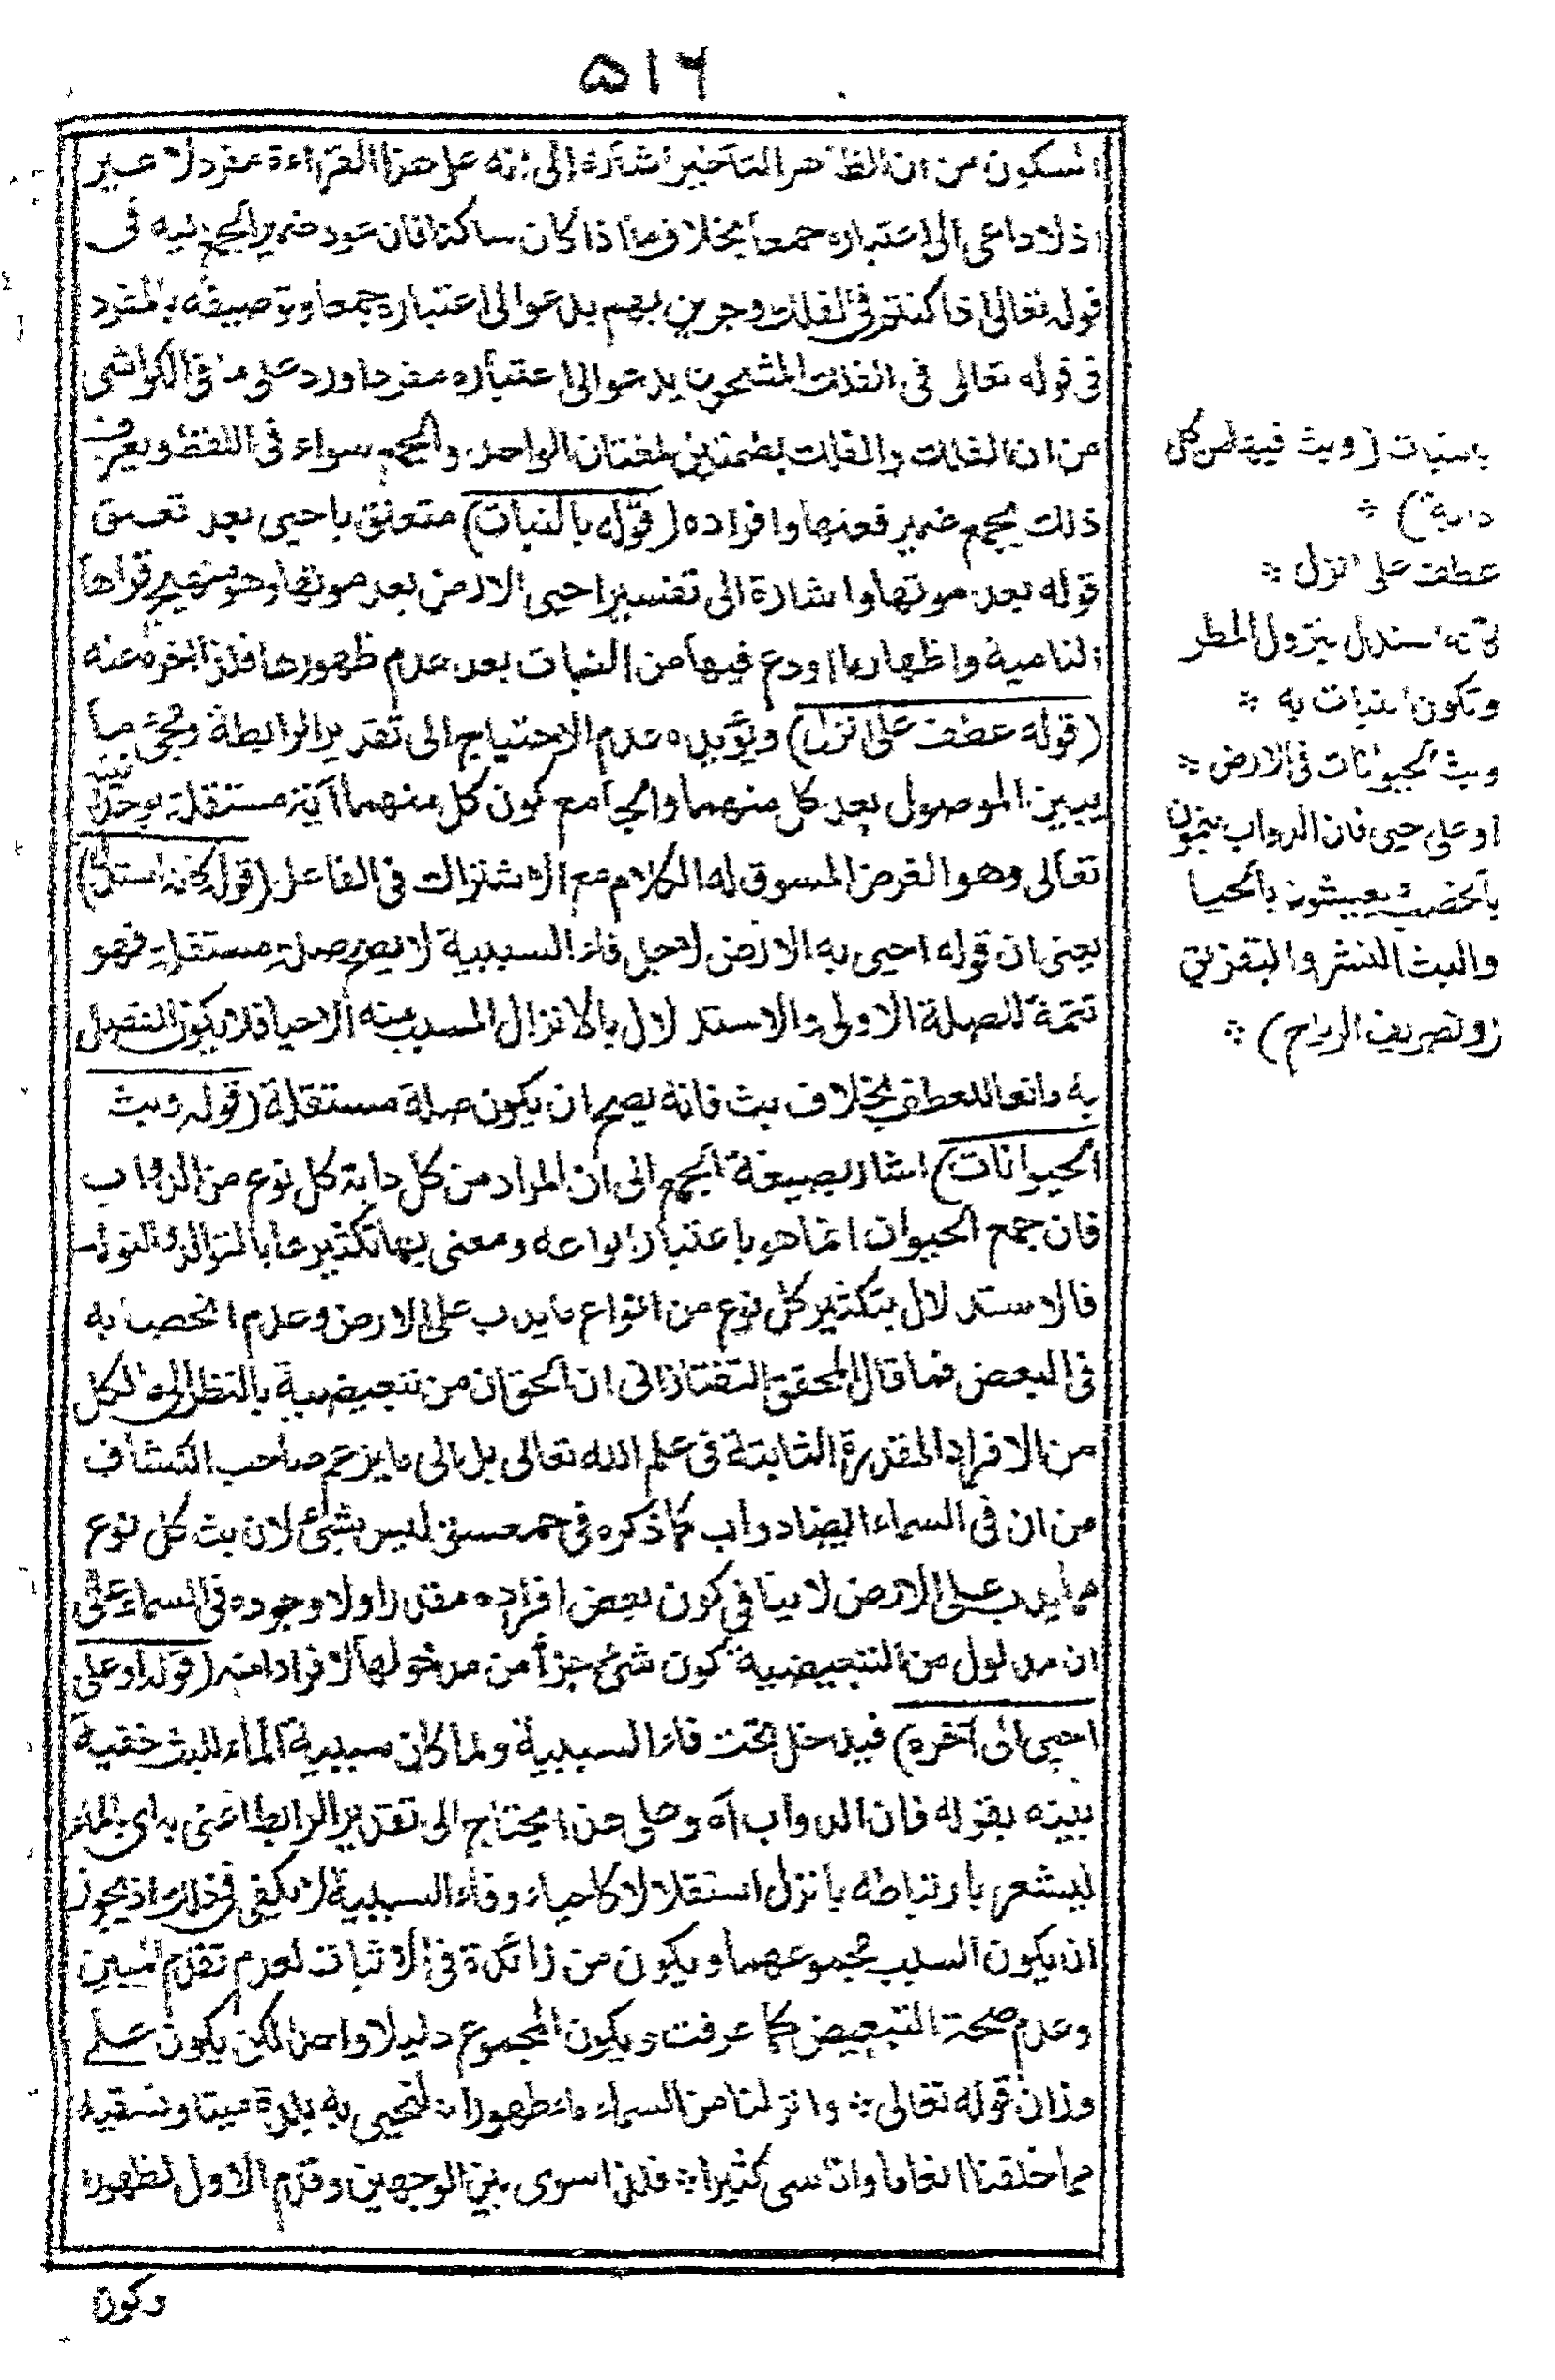 ۵۱۶
السكون من ان الظاهر التأخير اشارة الى انه على هذا القراءة مفرد لا غير
اذ لا داعى الى اعتباره جمعا بخلاف ما اذا كان ساكنا فان عود ضمير الجمع اليه فى
قوله تعالى اذا كنتم فى الفلك وجرين بهم يدعو الى اعتباره جمعا وتوصيفه بالمفرد
فى قوله تعالى فى الفلك المشحون يدعو الى اعتباره مفردا ورد على ما فى الكواشى
من ان الفلك والفلك بضمتين لغتان الواحد والجمع سواء فى اللفظ ويعرف
ذلك بجمع ضمير فعلها وافراده (قوله بالنبات) متعلق باحيى بعد تعلق
قوله بعد موتها واشارة الى تفسير احيى الارض بعد موتها وهو تهييج قواها
النامية واظهار ما اودع فيها من النبات بعد عدم ظهورها فلذا اخره عنه
(قوله عطف على انزل) ويؤيده عدم الاحتياج الى تقدير الرابطة ومجئ ما
يبين الموصول بعد كل منهما والجامع كون كل منهما آية مستقلة لوحدانيته
تعالى وهو الغرض المسوق له الكلام مع الاشتراك فى الفاعل (قوله كانه استدل)
يعنى ان قوله احيى به الارض لاجل فاء السببية لا يصير صلة مستقلة فهو
تتمة للصلة الاولى والاستدلال بالانزال المسبب منه الاحياء فلا يكون الفصل
به مانعا للعطف بخلاف بث فانه يصح ان يكون صلة مستقلة (قوله وبث
الحيوانات) اشار بصيغة الجمع الى ان المراد من كل دابة كل نوع من الدواب
فان جمع الحيوان انما هو باعتبار انواعه ومعنى بثها تكثيرها بالتوالد والتولد
فالاستدلال بتكثير كل نوع من انواع ما يدب على الارض وعدم انحصاره
فى البعض فما قال المحقق التفتازانى ان الحق ان من تبعيضية بالنظر الى الكل
من الافراد المقدرة الثابتة فى علم الله تعالى بل الى ما يزعم صاحب الكشاف
من ان فى السماء ايضا دواب كما ذكره فى حمعسق ليس بشئ لان بث كل نوع
مما يدب على الارض لا ينافى كون بعض افراده مقدرا ولا وجوده فى السماء على
ان مدلول من التبعيضية كون شئ جزأ من مدخولها لا فرادا منه (قوله او على
احيى الى آخره) فيدخل تحت فاء السببية ولما كان سببية الماء للبث خفية
بينه بقوله فان الدواب آه وعلى هذا يحتاج الى تقدير الرابط اعنى به اى بالماء
ليشعر بارتباطه بانزل استقلالا كاحياء وفاء السببية لا يكفى فى ذلك اذ يجوز
ان يكون السبب مجموعهما ويكون من زائدة فى الاثبات لعدم تقدم المبين
وعدم صحة التبعيض كما عرفت ويكون المجموع دليلا واحدا لكن يكون على
وزان قوله تعالى ۞ وانزلنا من السماء ماء طهورا لنحيى به بلدة ميتا ونسقيه
مما خلقنا انعاما واناسى كثيرا ۞ فلذا سوى بين الوجهين وقدم الاول لظهوره
وكون
بالنبات (وبث فيها من كل
دابة) ۞
عطف على انزل ۞
كانه استدل بنزول المطر
وتكون النبات به ۞
وبث الحيوانات فى الارض ۞
او على احيى فان الدواب ينمون
بالخصب ويعيشون بالحيا
والبث النشر والتفريق
(وتصريف الرياح) ۞